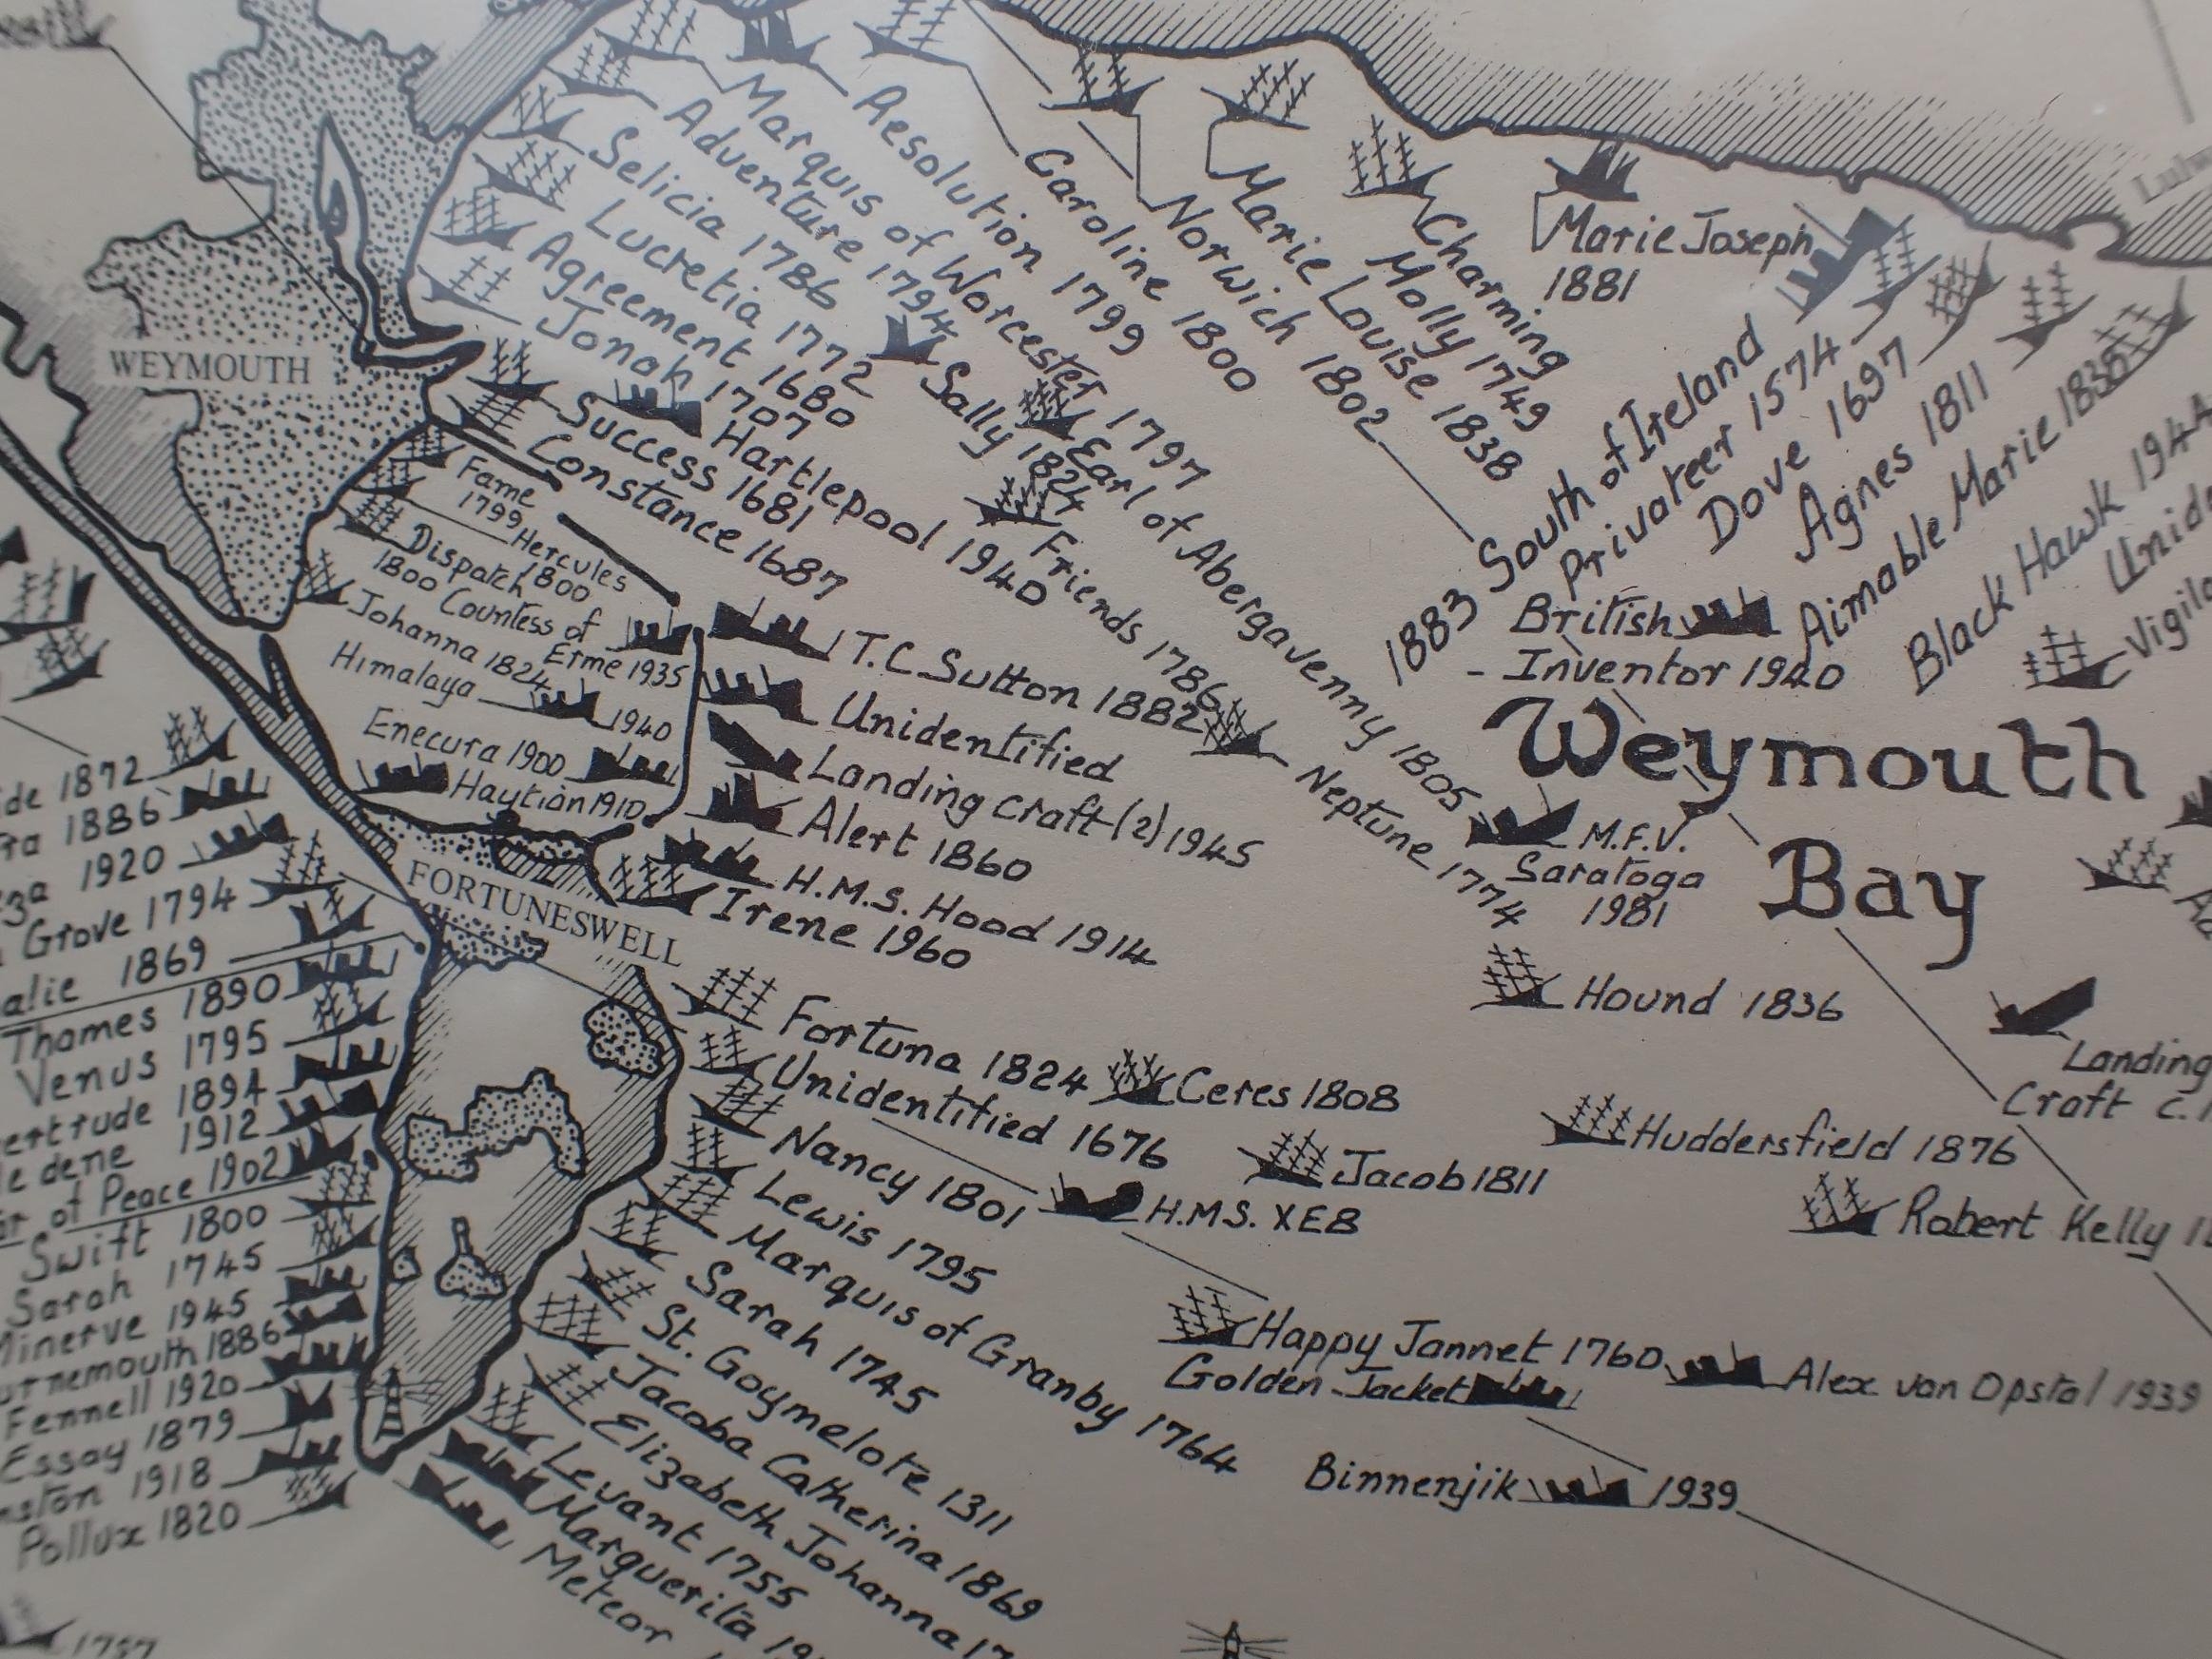 WEYMOUTH
Marquis of Worcester 1797
Adventure 1794
Selicia 1786
Lucretia 1772
Agreement 1680
Jonah 1707
Resolution 1799
Caroline 1800
Norwich 1802
Marie Louise 1838
Charming
Molly 1749
Marie Joseph
1881
1883 South of Ireland
Privateer 1574
Dove 1697
Agnes 1811
Aimable Marie 1838
Black Hawk 1944
British
- Inventor 1940
Sally 1824
Earl of Abergavenny 1805
Friends 1786
Neptune 1774
Success 1681
Hartlepool 1940
Constance 1687
Fame
1799
Hercules
1800
Dispatch
1800
Countess of
Erme 1935
Johanna 1824
Himalaya 1940
Enecura 1900
Haytian 1910
T.C. Sutton 1882
Unidentified
Landing craft (2) 1945
Alert 1860
H.M.S. Hood 1914
Irene 1960
Weymouth
Bay
M.F.V.
Saratoga
1981
Hound 1836
Landing
Craft c.
FORTUNESWELL
1872
1886
1920
Grove 1794
1869
Thames 1890
Venus 1795
1894
1912
of Peace 1902
Swift 1800
Sarah 1745
Minerve 1945
1886
Fennell 1920
Essay 1879
1918
Pollux 1820
Fortuna 1824
Ceres 1808
Unidentified 1676
Jacob 1811
Huddersfield 1876
Nancy 1801
H.M.S. XE8
Robert Kelly
Lewis 1795
Marquis of Granby 1764
Sarah 1745
St. Goymelote 1311
Jacoba Catherina 1869
Elizabeth Johanna
Levant 1755
Marguerita
Meteor
Happy Jannet 1760
Golden Jacket
Alex van Opstal 1939
Binnenjik 1939